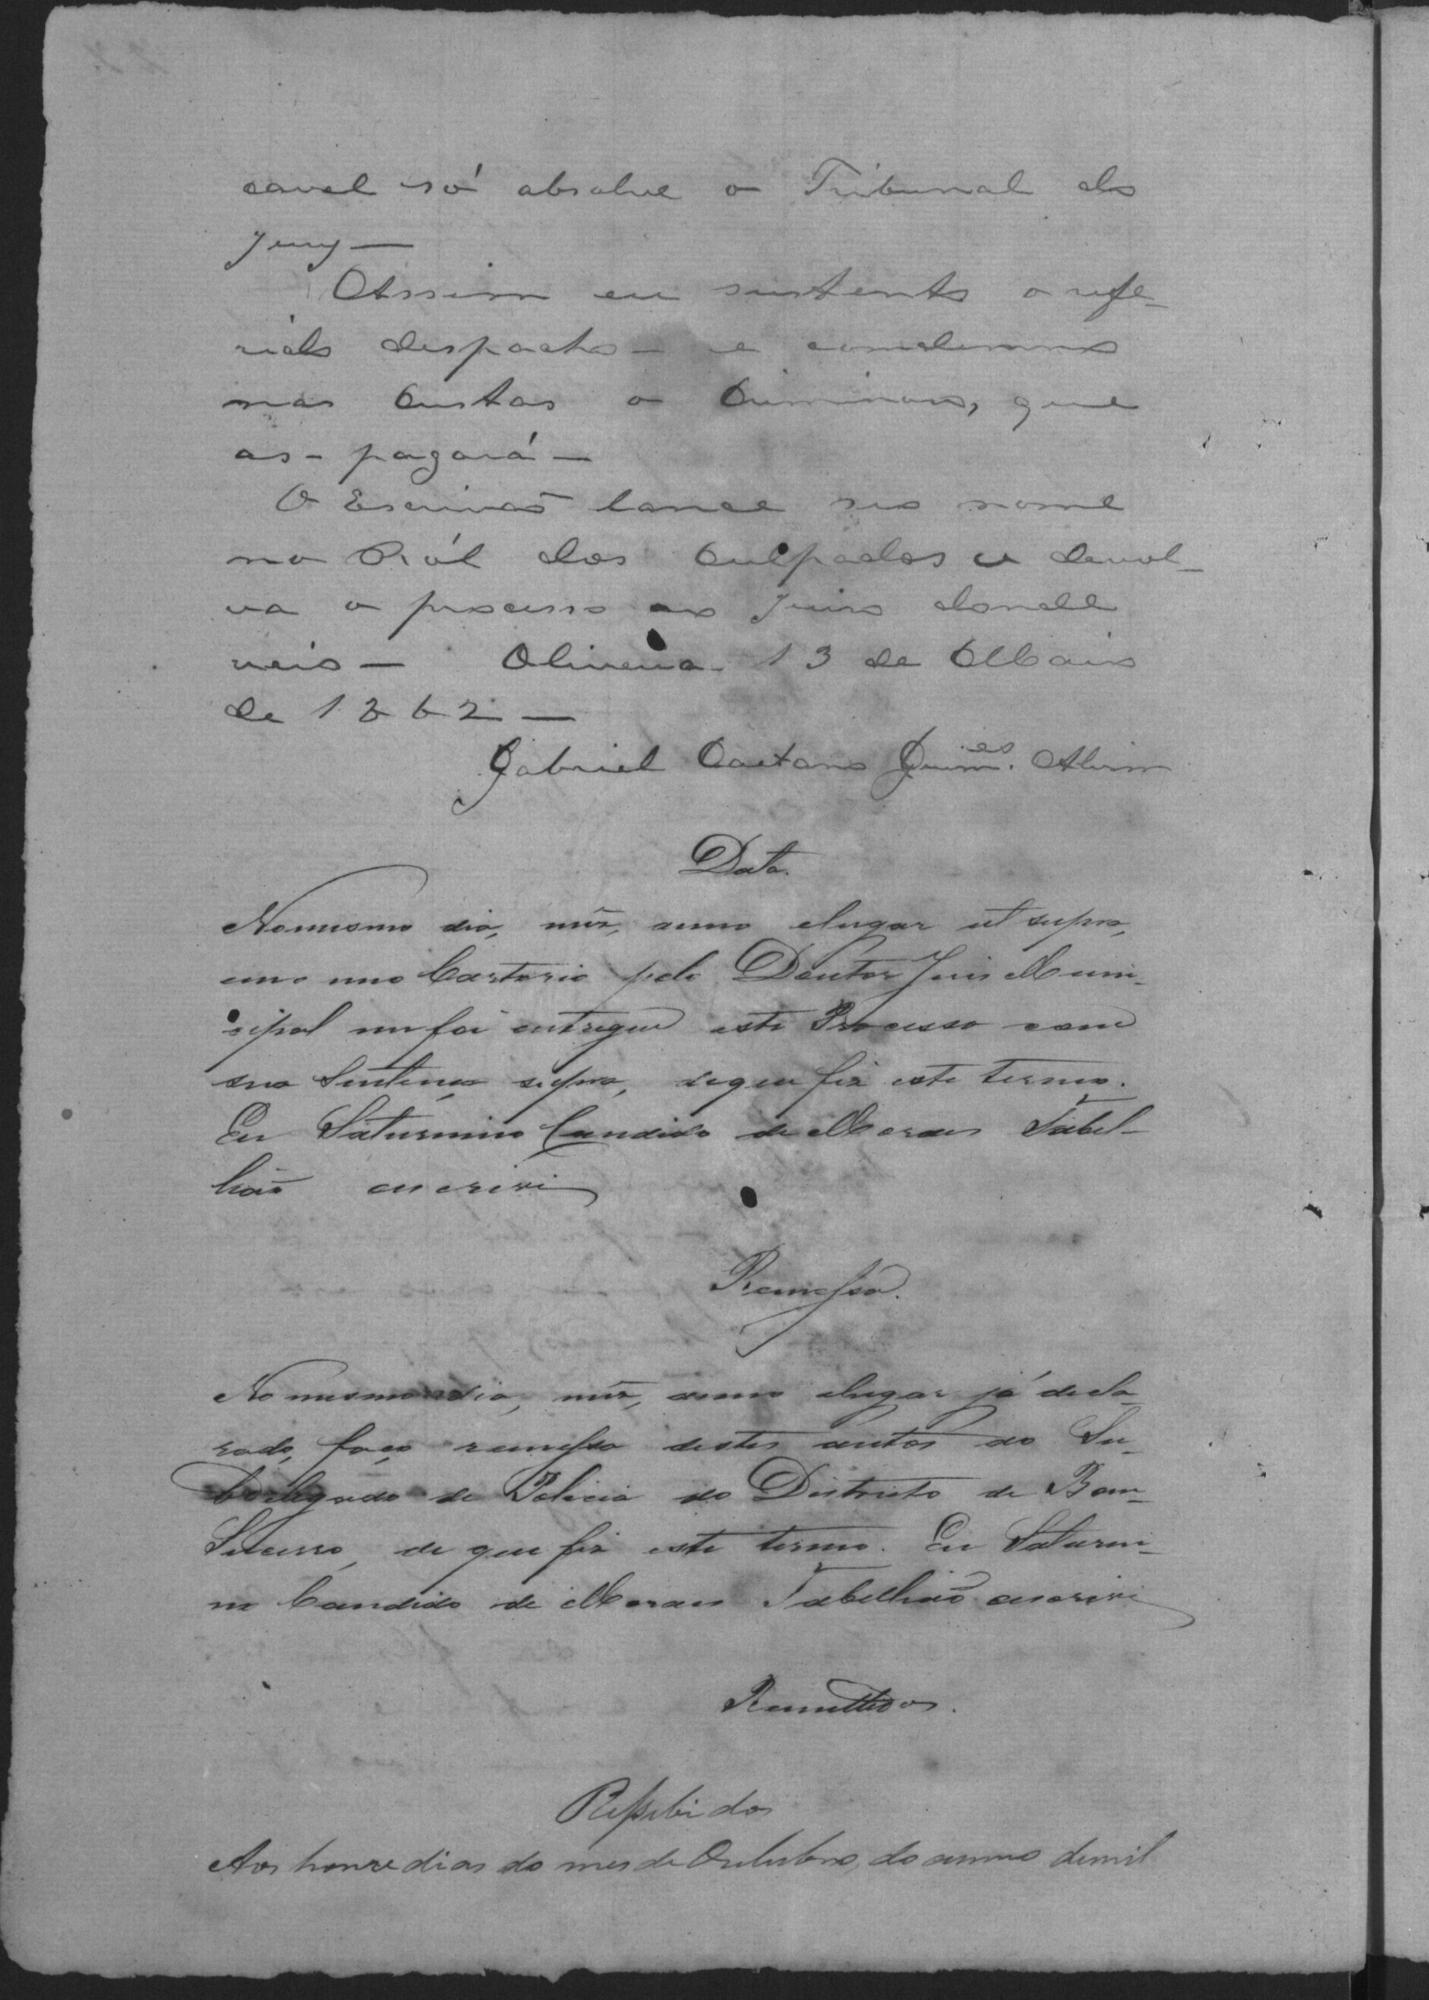 cavel só absolve o Tribunal do
Jury —
Assim eu sustento o refe-
rido despacho — e condemno
nas custas o Criminoso, que
as - pagará —
O Escrivaõ lance seo nome
no Ról dos Culpados e devol-
va o processo ao Juiso donde
veio — Oliveira 13 de Maio
de 1862 —
Gabriel Caetano Guim.es Alvim
Data.
No mesmo dia, mêz, anno elugar ut supra,
em meo Cartorio pelo Doutor Juis Muni-
cipal me foi entregue este Processo com
sua Sentença supra, de que fiz este termo.
Eu Saturnino Candido de Moraes Tabel-
liaõ escrivi
Remessa.
No mesmo dia, mêz, anno elugar já decla-
rado, faço remessa destes autos ao Su-
bdelegado de Policia do Districto de Bom-
Sucesso, de que fiz este termo. Eu Saturni-
no Candido de Moraes Tabelliaõ escrivi
Remettidos.
Ressebidos
Aos honze dias do mes de Outubro, do anno demil